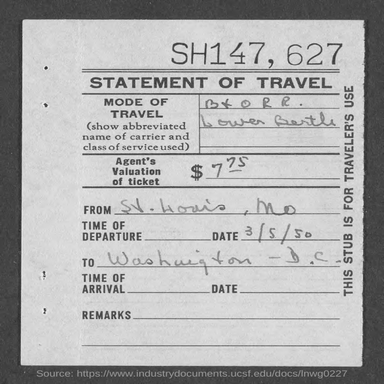 SH147, 627
STATEMENT OF TRAVEL
MODE OF TRAVEL
(show abbreviated name of carrier and class of service used)
B & O R R.
Lower Berth
Agent's Valuation of ticket $ 7 75
FROM St. Louis, Mo
TIME OF DEPARTURE DATE 3/5/50
TO Washington - D.C.
TIME OF ARRIVAL DATE
REMARKS
THIS STUB IS FOR TRAVELER'S USE
Source: https://www.industrydocuments.ucsf.edu/docs/lnwg0227